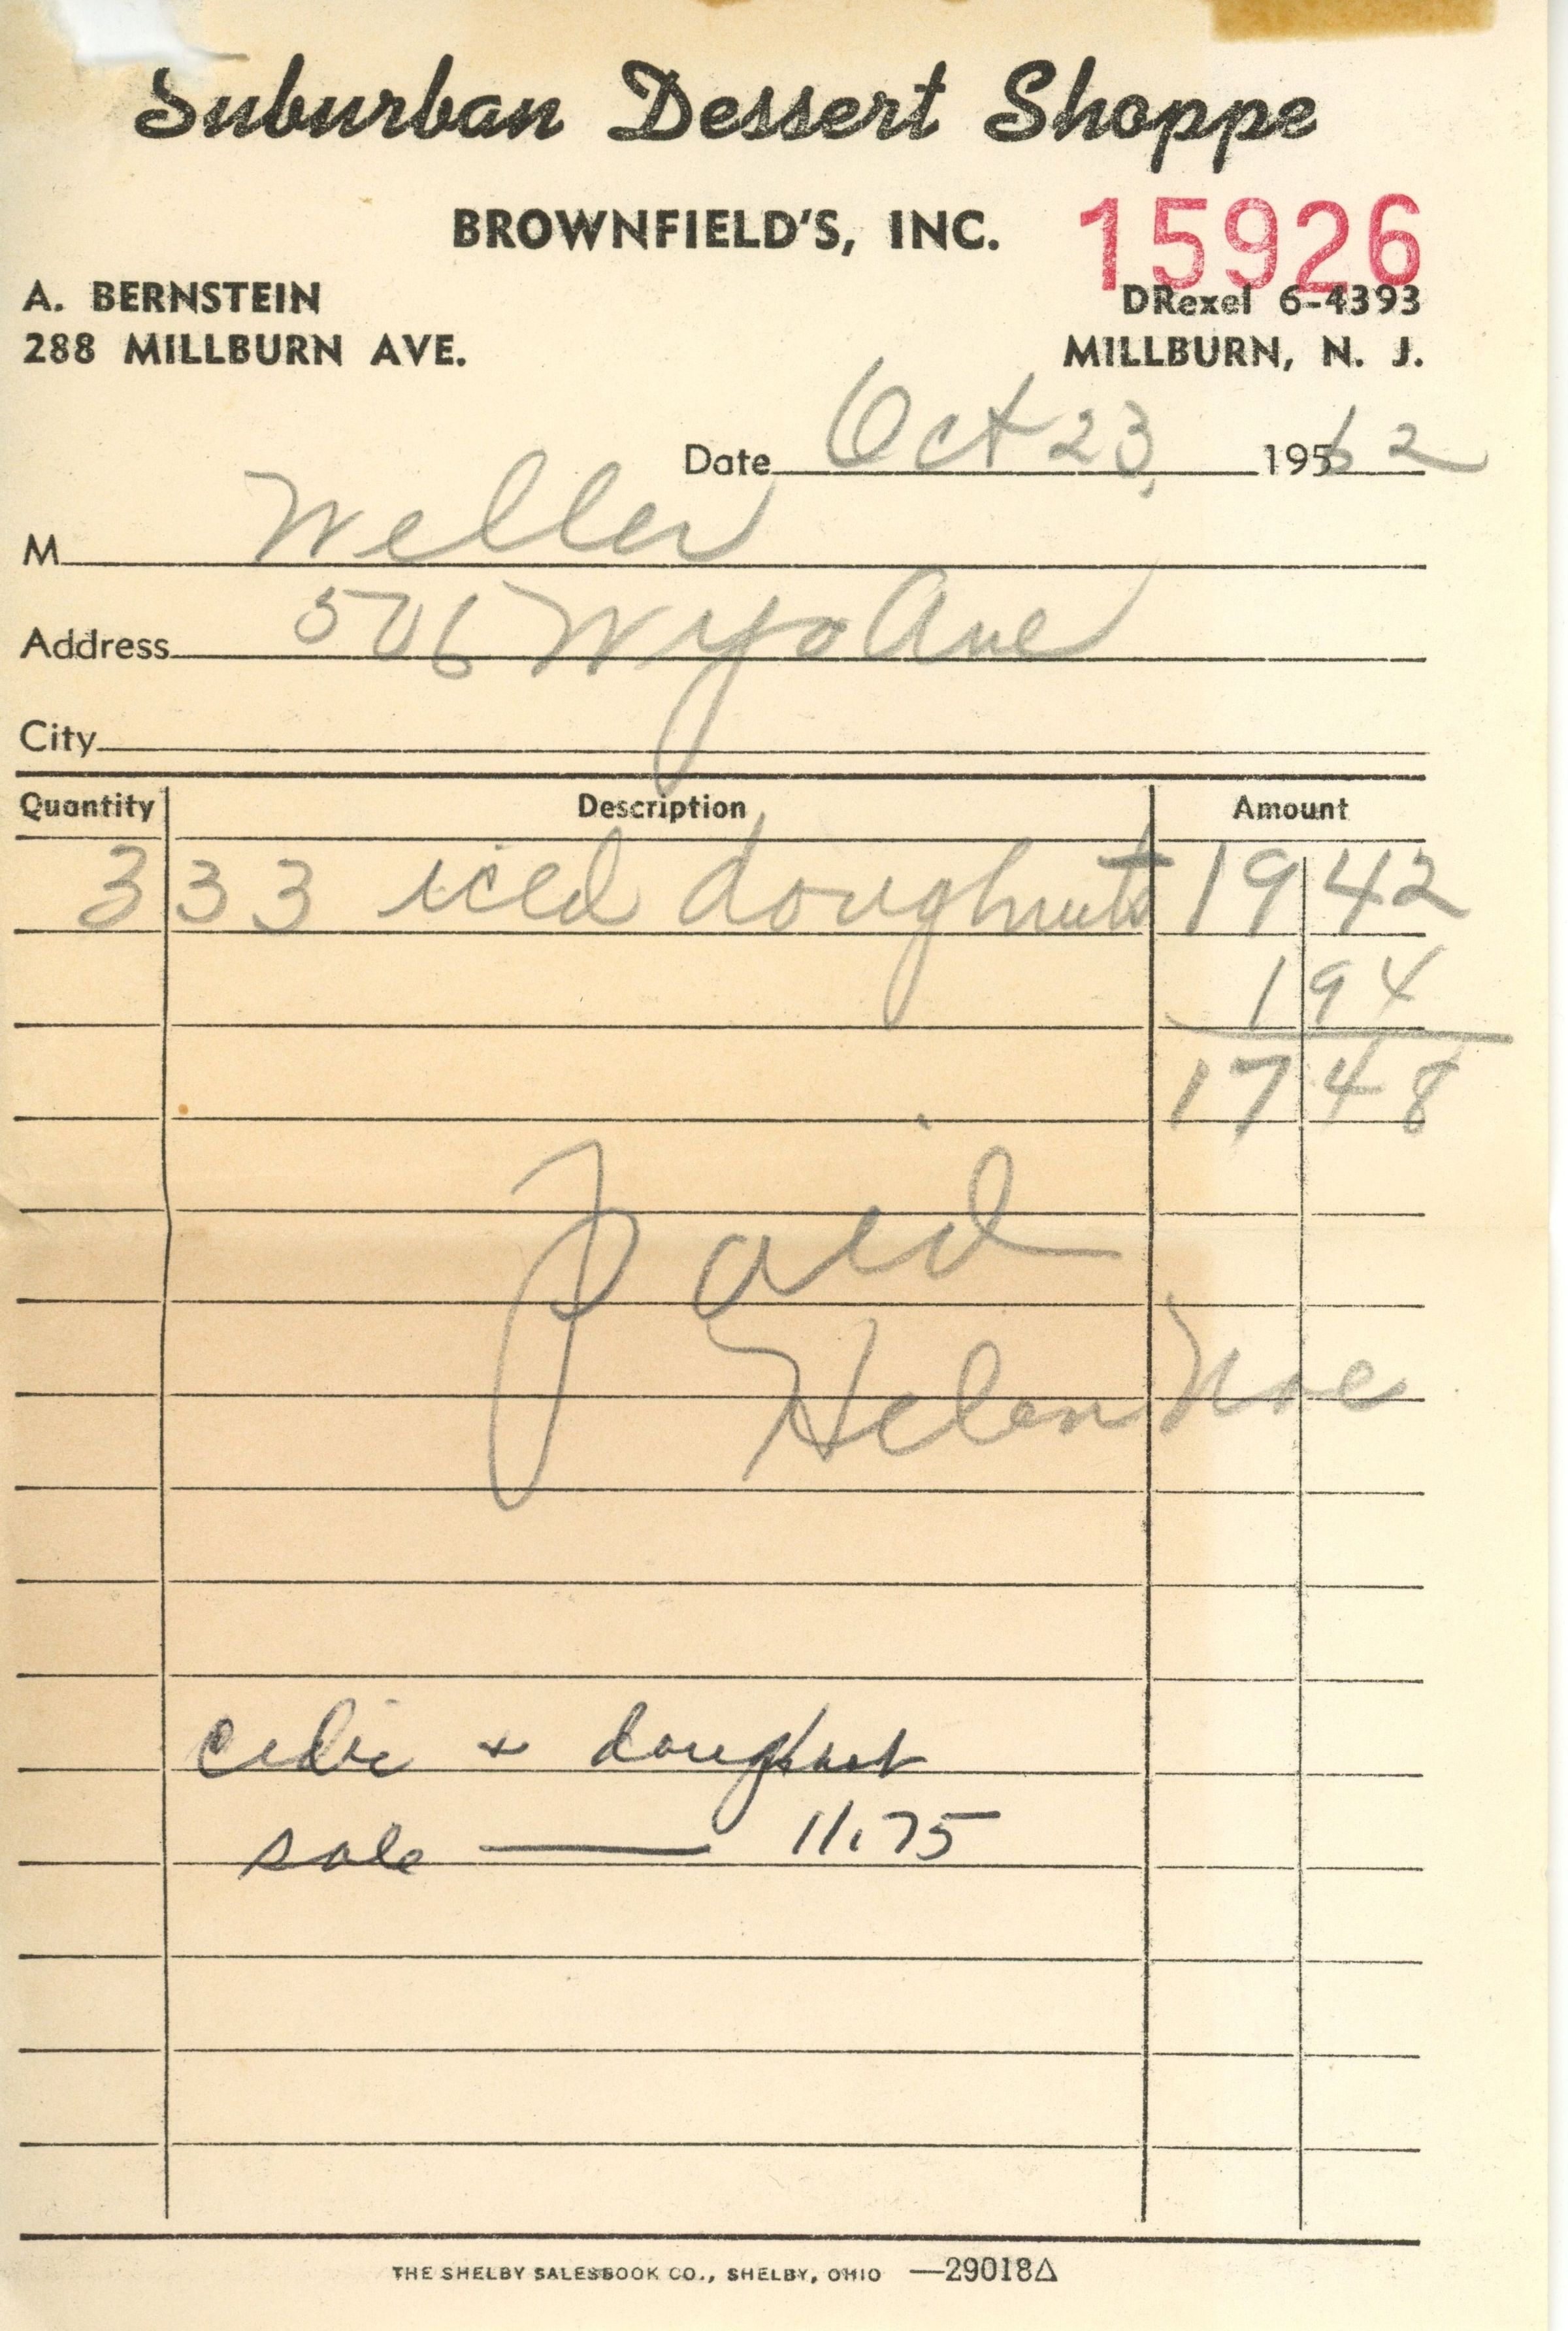 Suburban Dessert Shoppe
BROWNFIELD'S, INC.
15926
A. BERNSTEIN DRexel 6-4393
288 MILLBURN AVE. MILLBURN, N. J.
Date Oct 23, 195 62
M Weller
Address 506 Wyo Ave
City
Quantity Description Amount
333 iced doughnuts 19 42
1 94
17 48
Paid
Helen Noe
cider + doughnut
sale — 11.75
THE SHELBY SALESBOOK CO., SHELBY, OHIO —29018Δ